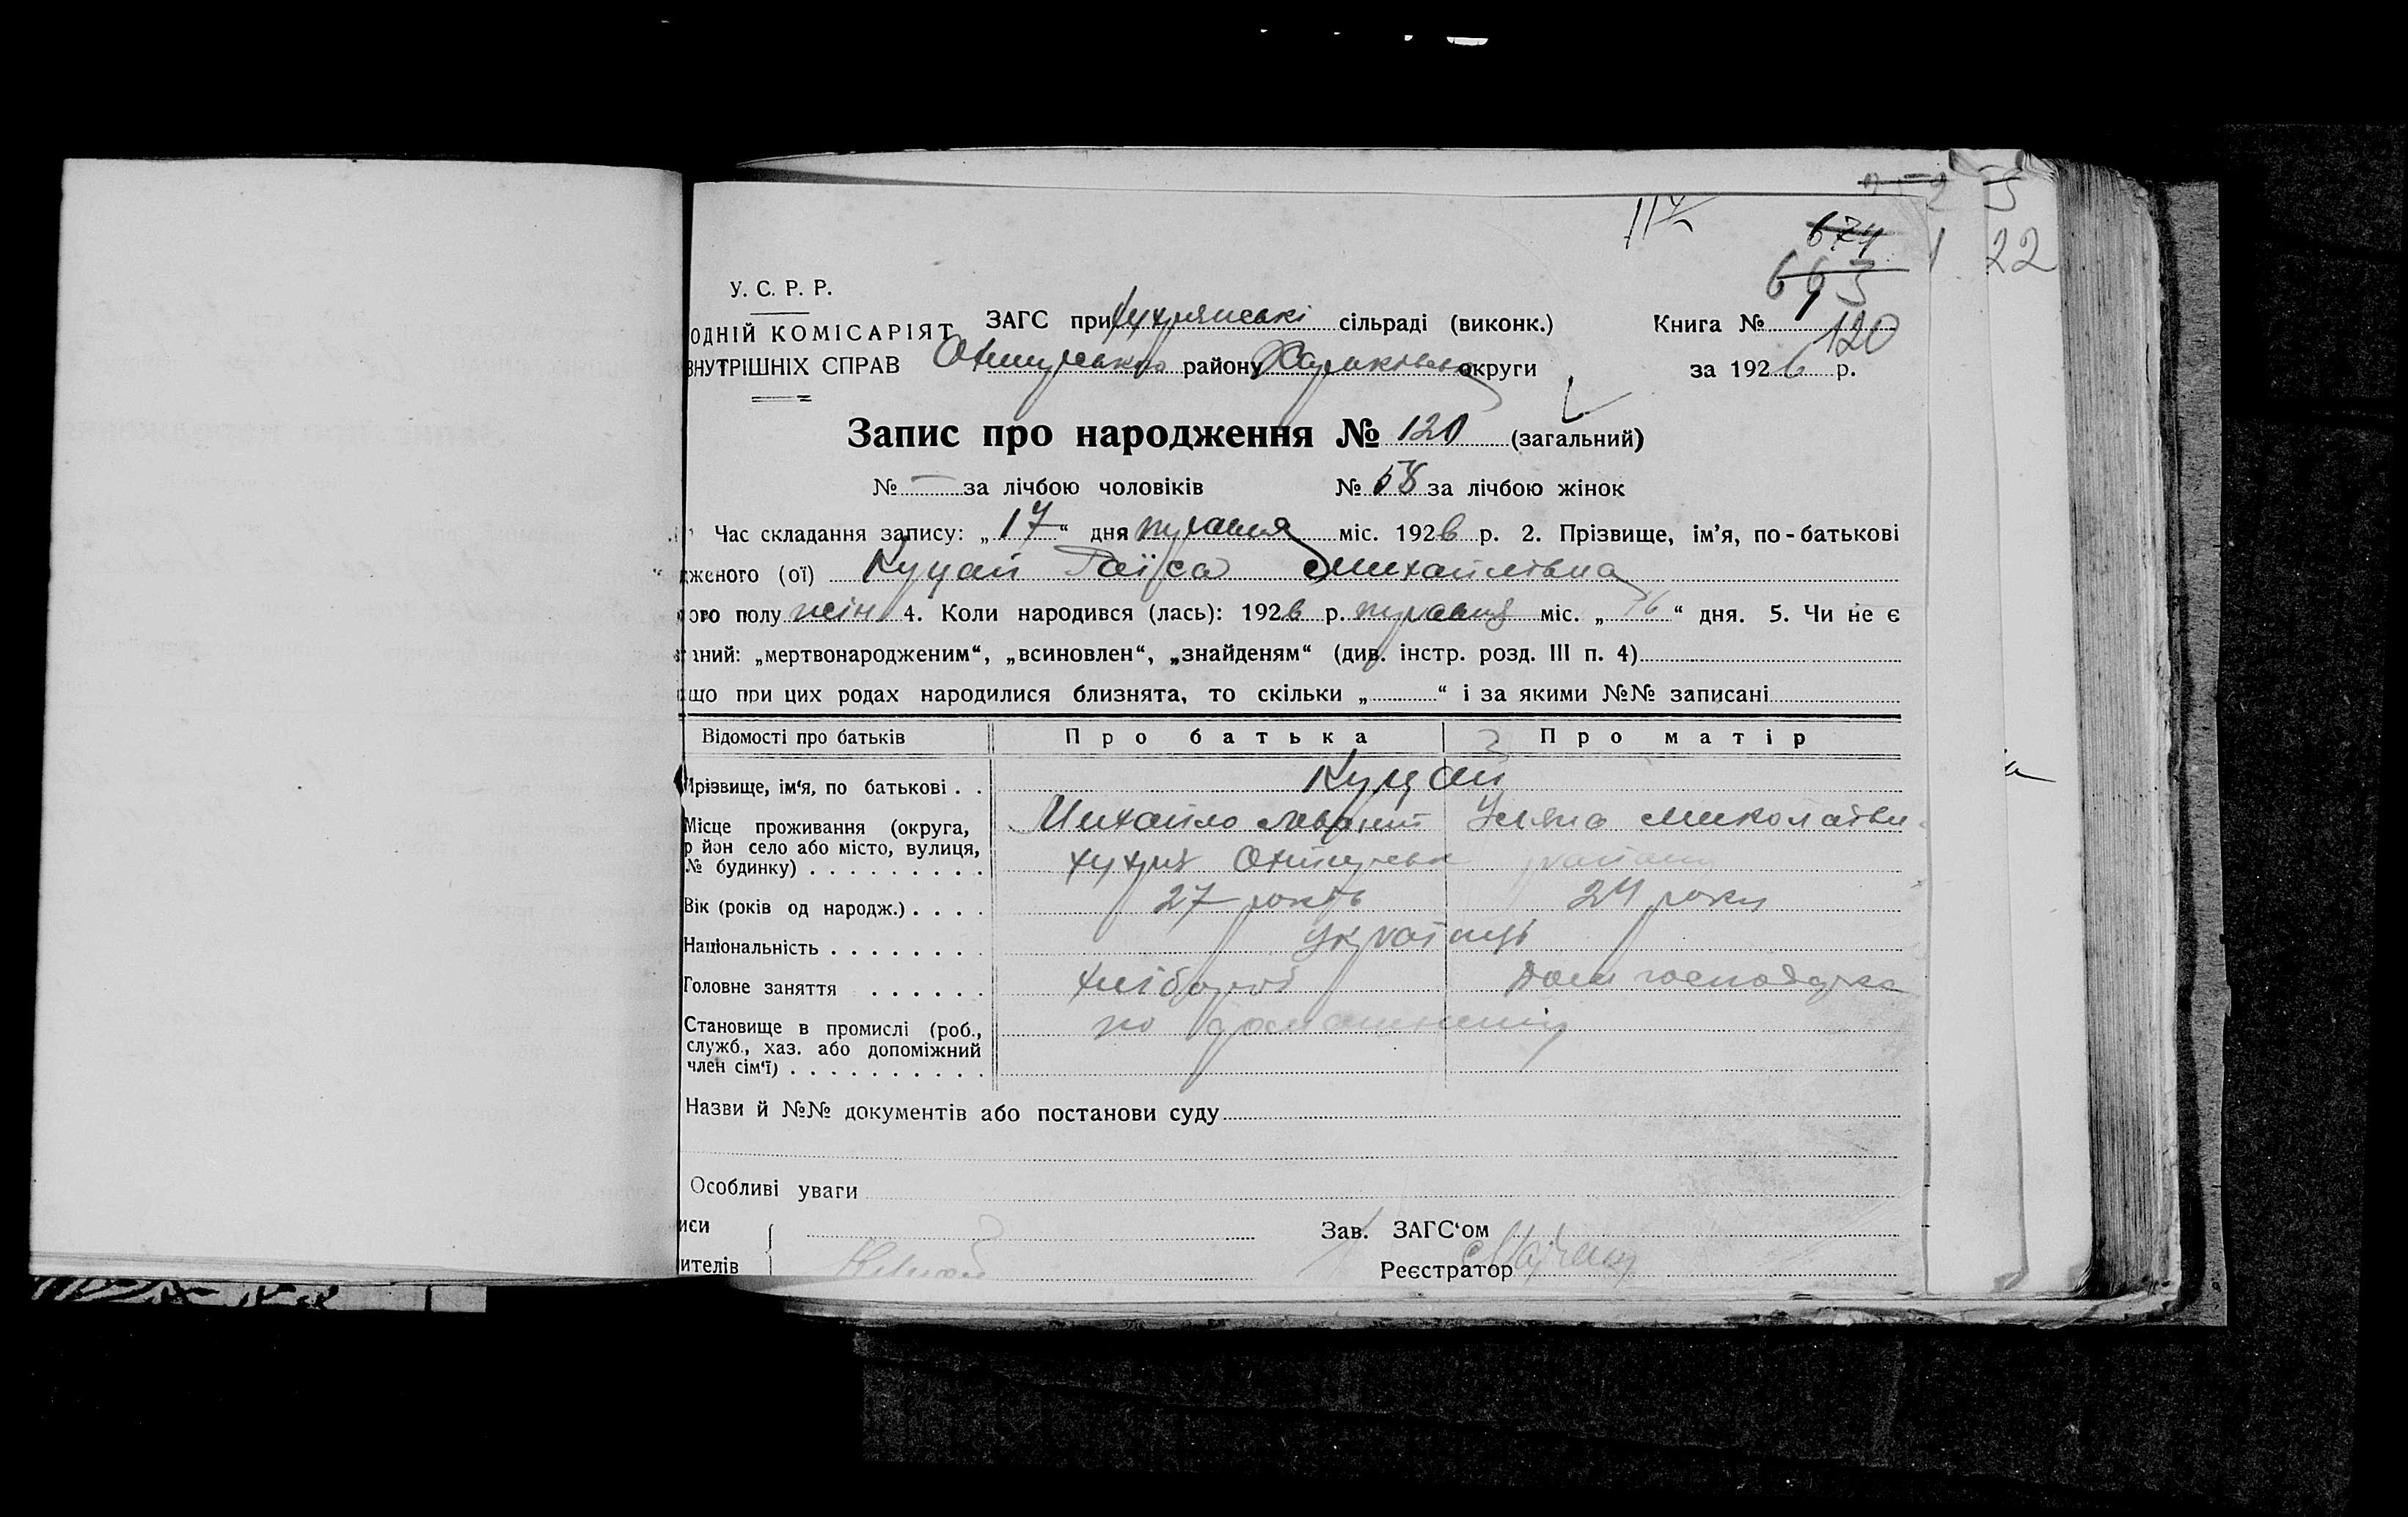 2 5
117
674
1 22
663
У. С. Р. Р.
ОДНІЙ КОМІСАРІЯТ ЗАГС при Хухрянські сільраді (виконк.) Книга № 120
ВНУТРІШНІХ СПРАВ Охтирського району Харківської округи за 1926 р.
Запис про народження № 120 (загальний)
№ — за лічбою чоловіків № 58 за лічбою жінок
Час складання запису: „17“ дня травня міс. 1926 р. 2. Прізвище, ім’я, по-батькові
дженого (ої) Куцай Раїса Михайлівна
ого полу жін 4. Коли народився (лась): 1926 р. травня міс. „16“ дня. 5. Чи не є
аний: „мертвонародженим“, „всиновлен“, „знайденям“ (див. інстр. розд. III п. 4)
що при цих родах народилися близнята, то скільки „ “ і за якими №№ записані
Відомості про батьків Про батька Про матір
Прізвище, ім‘я, по батькові . . Куцай
Місце проживання (округа, Михайло Уляна Миколаївн
р йон село або місто, вулиця,
№ будинку) . . . . . . . . . Хухря Охтирськ району
Вік (років од народж.) . . . . 27 років 24 роки
Національність . . . . . . . . Українці
Головне заняття . . . . . . хлібороб Дом господарка
Становище в промислі (роб., по
служб., хаз. або допоміжний
член сім‘ї) . . . . . . . . . .
Назви й №№ документів або постанови суду
Особливі уваги
иси Зав. ЗАГС‘ом
ителів Реєстратор